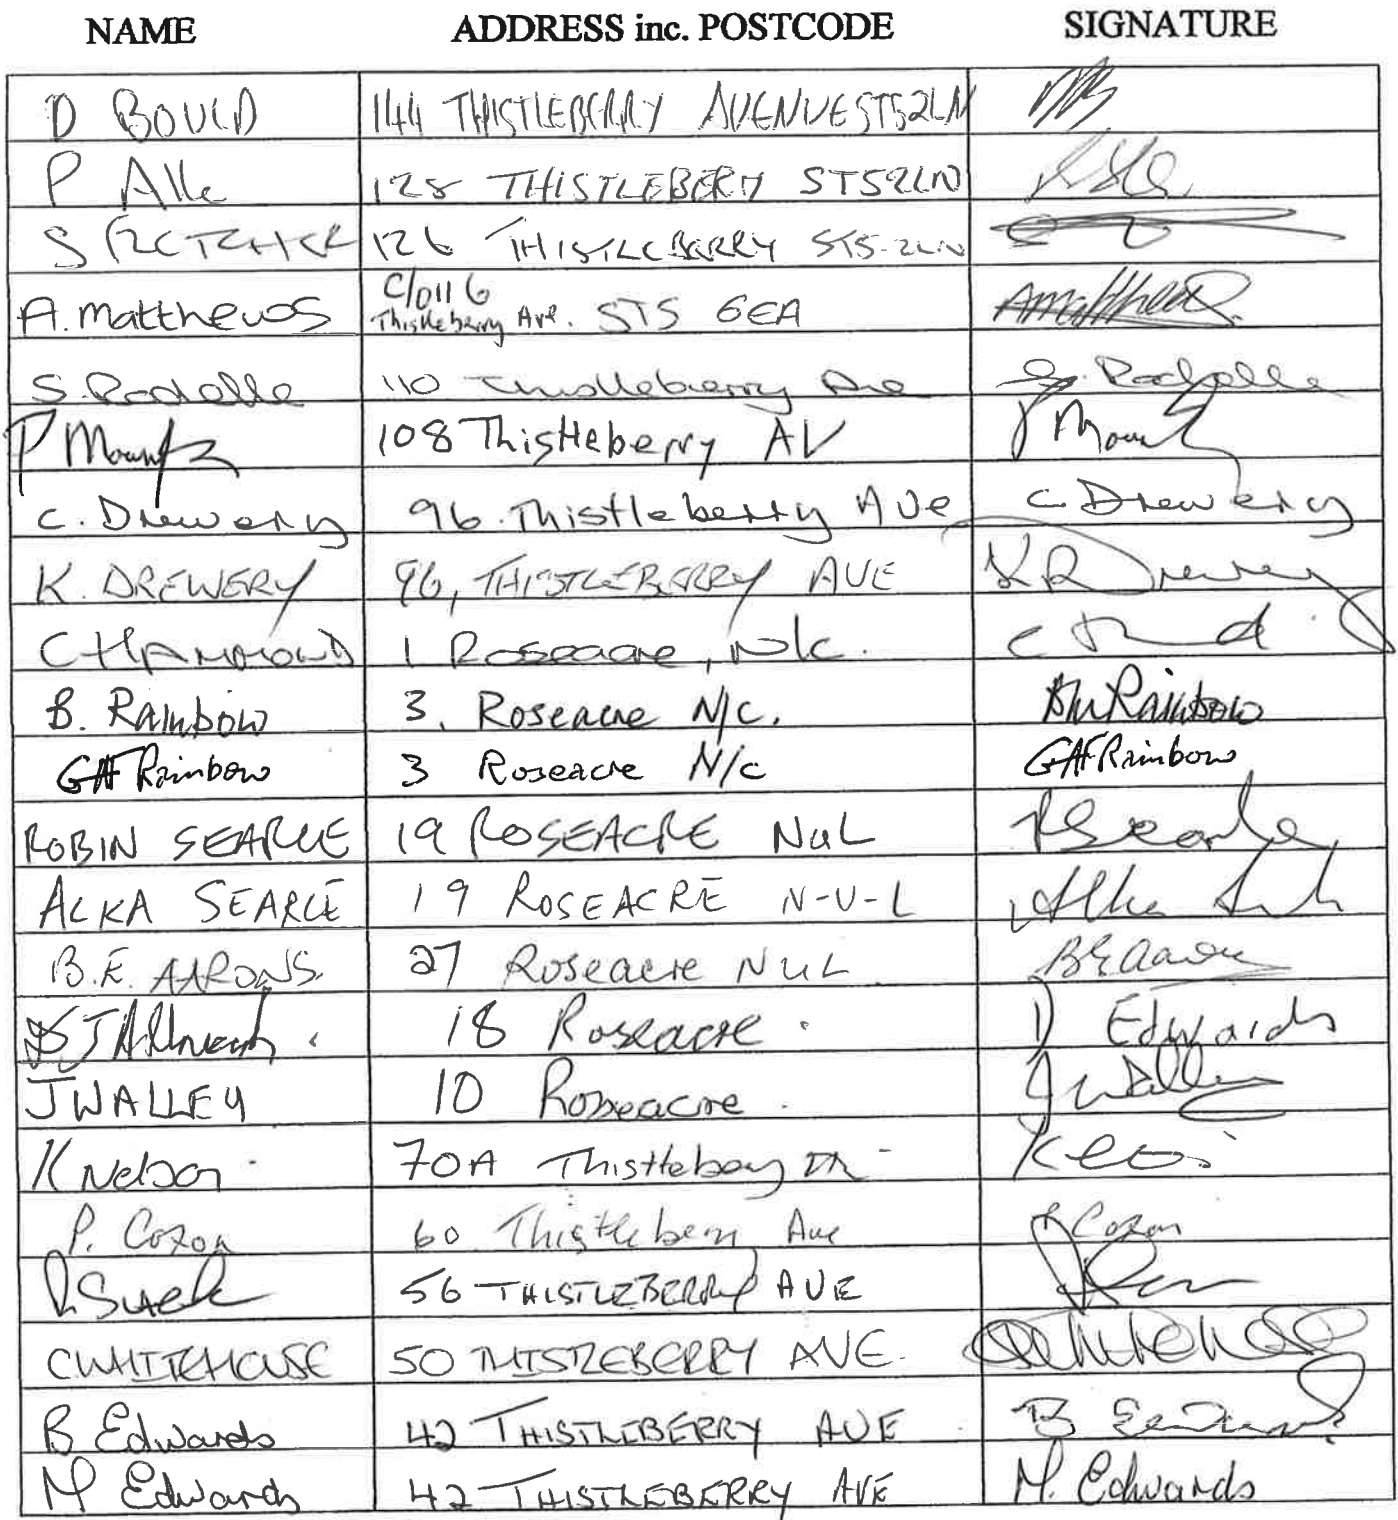 NAME ADDRESS inc. POSTCODE SIGNATURE
D BOULD 144 THISTLEBERRY AVENUE ST52LN
P Alle 128 THISTLEBERRY ST52LN
S FLETCHER 126 THISTLEBERRY ST5-2LN
A. Matthews C/O 116 AMatthews
Thistleberry Ave. ST5 6EA
S. Rochelle 110 Thistleberry Ave S. Rochelle
P 108 Thistleberry AV P
C. Drewery 96. Thistleberry Ave C. Drewery
K. DREWERY 96, THISTLEBERRY AVE KR Drewery
C HAMMOND 1 Roseacre, N/c.
B. Rainbow 3, Roseacre N/c. BM Rainbow
GAF Rainbow 3 Roseacre N/c GAF Rainbow
ROBIN SEARLE 19 ROSEACRE NuL RSearle
ALKA SEARLE 19 ROSEACRE N-U-L Alka
B.E. AARONS. 27 Roseacre NUL BEAarons
18 Roseacre. D Edwards
J WALLEY 10 Roseacre. J Walley
K Nelson 70A
P. Coxon 60 Thistleberry Ave P Coxon
56 THISTLEBERRY AVE
C WHITEHOUSE 50 THISTLEBERRY AVE. Whitehouse
B Edwards 42 THISTLEBERRY AVE B Edwards
M Edwards 42 THISTLEBERRY AVE M. Edwards